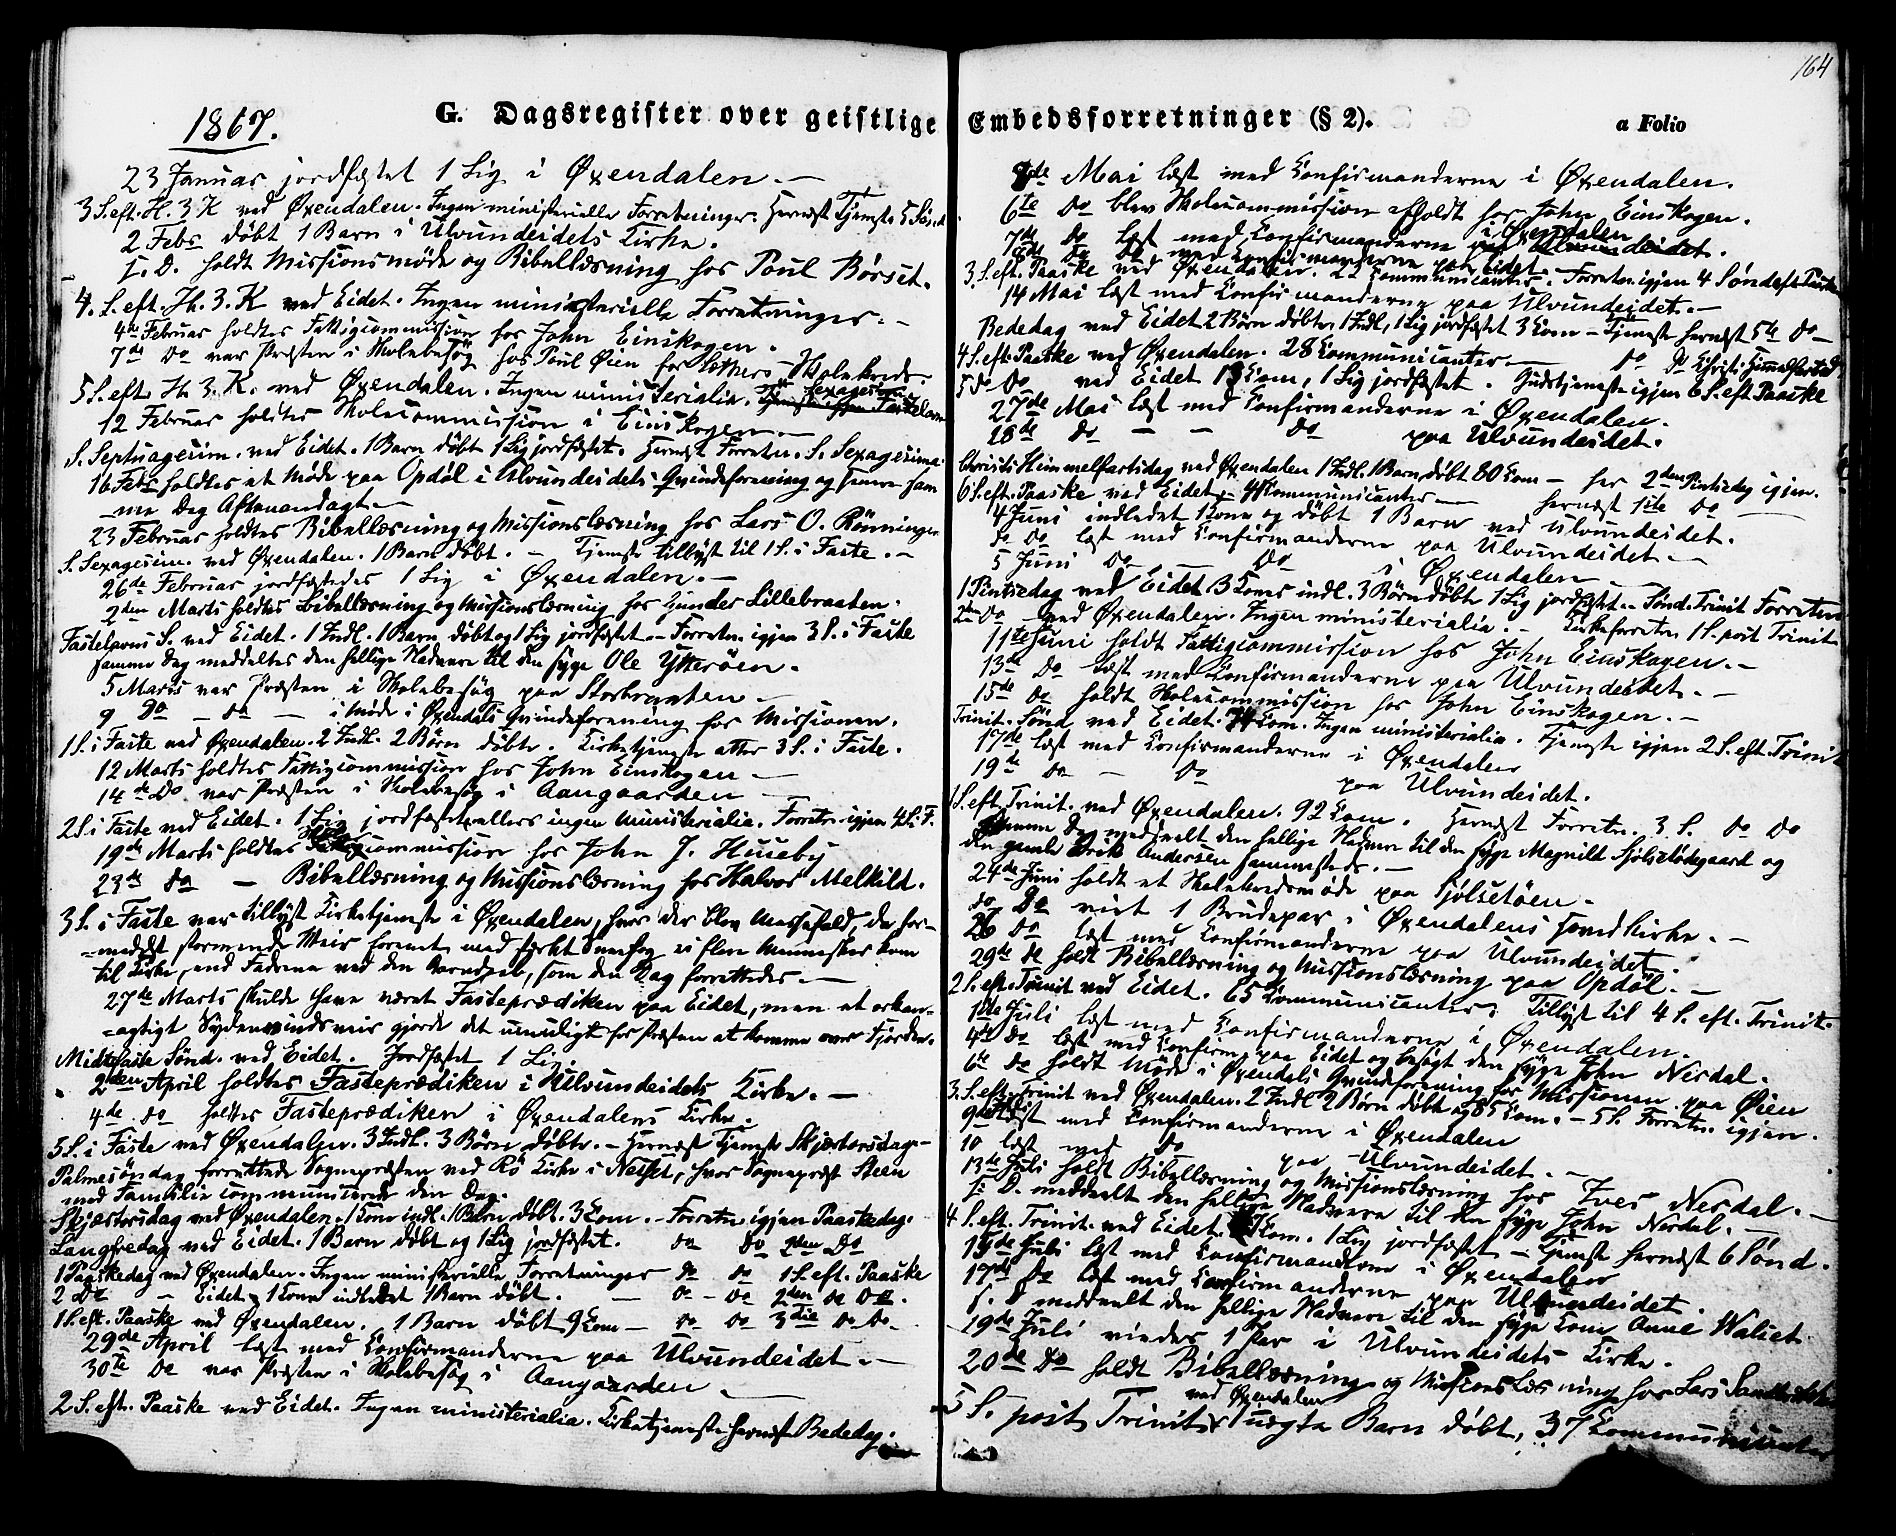 164
G. Dagsregister over geistlige Embedsforretninger (§ 2).
a Folio
1867.
23 Januar jordfæstet 1 Lig i Øxendalen. —
3 S. eft. H. 3 K ved Øxendalen. Ingen ministerielle Forretninger. Hernæst Tjeneste 5 Sønd
2 Febr døbt 1 Barn i Ulvundeidets Kirke.
S. D. holdt Missionsmøde og Bibellæsning hos Poul Børset.
4. S. eft. H. 3. K ved Eidet. Ingen ministerielle Forretninger. —
4de Februar holdtes Fattigcommission hos John Einskogen.
7de Do var Præsten i Skolebesøg hos Poul Øien for Skolekreds.
5 S. eft. H. 3. K. ved Øxendalen. Ingen ministerialia.
12 Februar holdtes Skolecommission i Einskogen. —
S. Septuagesim. ved Eidet. 1 Barn døbt 1 Lig jordfæstet. Hernæst Forretn. S. Sexagesima.
16 Febr holdtes et Møde paa Opdøl i Ulvundeidets Qvindeforening og samme
Dag Aftenandagt. —
23 Februar holdtes Bibellæsning og Missionslæsning hos Lars O. Rønningen
S. Sexagesim. ved Øxendalen. 1 Barn døbt. — Tjeneste tillyst til 1 S. i Faste. —
26de Februar jordfæstedes 1 Lig i Øxendalen. —
2den Marts holdtes Bibellæsning og Missionslæsning hos Gunder Lillebraaten.
Fastelavns S. ved Eidet. 1 Indl. 1 Barn døbt og 1 Lig jordfæstet — Forretn. igjen 3 S. i Faste
samme Dag meddeltes den hellige Nadvere til den syge Ole Ytterøen.
5 Marts var Præsten i Skolebesøg paa Storbraaten —
9 Do — Do — i Møde i Øxendals Qvindeforening for Missionen.
1 S. i Faste ved Øxendalen. 2 Indl. 2 Børn døbte. Kirketjeneste atter 3 S. i Faste.
12 Marts holdtes Fattigcommission hos John Einskogen —
14de Do var Præsten i Skolebesøg i Aangaarden —
2 S. i Faste ved Eidet. 1 Lig jordfæstet ellers ingen ministerialia. Forretn. igjen 4 S. i F.
19de Marts holdtes Skolecommission hos John J. Huseby
23de Do — Bibellæsning og Missionslæsning hos Halvor Melkild.
3 S. i Faste var tillyst Kirketjeneste i Øxendalen, hvor der blev Messefald, da for-
=medelst stormende Veir forenet med stærkt Snefog ei flere Mennesker kom
til Kirke, end Fadrene ved den Barnedaab, som den Dag forrettedes. —
27de Marts skulde have været Fasteprædiken paa Eidet, men et orkan-
=agtigt Søndenvindsveir gjorde det umuligt for Præsten at komme over Fjorden.
Midtfaste Sønd. ved Eidet. Jordfæstet 1 Lig.
2den April holdtes Fasteprædiken i Ulvundeidets Kirke. —
4de do holdtes Fasteprædiken i Øxendalens Kirke.
5 S. i Faste ved Øxendalen. 3 Indl. 3 Børn døbte. — Hernæst Tjeneste Skjærtorsdag —
Palmesøndag forrettede Sognepræsten ved Rø Kirke i Nesset, hvor Sognepræst Steen
med Familie communicerede den Dag.
Skjærtorsdag ved Øxendalen. 1 Kone indl. 1 Barn døbt. 3 Com. — Forretn. igjen Paaskedag.
Langfredag ved Eidet. 1 Barn døbt og 1 Lig jordfæstet. do do 2den Do
1 Paaskedag ved Øxendalen. Ingen ministerielle Forretninger do do 1 S. eft. Paaske
2 Do — Eidet 1 Kone indledet 1 Barn døbt. — do — do 2den do Do.
1 S. eft. Paaske ved Øxendalen. 1 Barn døbt 9 Com — do do 3die do Do —
29de April læst med Confirmanderne paa Ulvundeidet. —
30te Do var Præsten i Skolebesøg i Aangaarden —
2 S. eft. Paaske ved Eidet. Ingen ministerialia. Kirketjeneste hernæst Bededag.
Mai læst med Confirmanderne i Øxendalen.
6te Do blev Skolecommission afholdt hos John Einskogen.
7de Do læst med Confirmanderne i Øxendalen
8de Do Do med Confirmanderne paa Eidet.
3. S. eft. Paaske ved Øxendalen. 22 Communicanter. Forretn. igjen 4 Sønd eft Paaske
14 Mai læst med Confirmanderne paa Ulvundeidet. —
Bededag ved Eidet 2 Børn døbte, 1 Indl, 1 Lig jordfæstet 3 Com — Tjeneste hernæst 5te Do —
4 S. eft. Paaske ved Øxendalen. 28 Communicanter — do Christi Himmelfartsd
5 do Do ved Eidet 13 Com, 1 Lig jordfæstet. Gudstjeneste igjen 6 S. eft Paaske
27de Mai læst med Confirmanderne i Øxendalen.
28de do — — do paa Ulvundeidet.
Christi Himmelfartsdag ved Øxendalen 1 Indl. 1 Barn døbt 80 Com — her 2den Pintsedag igjen.
6 S. eft. Paaske ved Eidet — Communicanter — hernæst 1ste Do
4 Juni indledet 1 Kone og døbt 1 Barn ved Ulvundeidet.
do Do læst med Confirmanderne paa Ulvundeidet. —
5 Juni Do — Do i Øxendalen —
1 Pintsedag ved Eidet. 3 Koner indl. 3 Børn døbte 1 Lig jordfæstet — Sønd. Trinit Forretn
2den Do ved Øxendalen. Ingen ministerialia. — Kirkeforretn 1 S. post Trinit
11te Juni holdt Fattigcommission hos John Einskogen. —
13de Do læst med Confirmanderne paa Ulvundeidet. —
15de do holdt Skolecommission hos John Einskogen. —
Trinit. Sønd ved Eidet. Com. Ingen ministerialia. Tjeneste igjen 2 S. eft. Trinit
17de læst med Confirmanderne i Øxendalen
19de do — Do paa Ulvundeidet.
1 S. eft Trinit. ved Øxendalen. 92 Com. Hernæst Forretn. 3 S. do Do
samme Dag meddeelt den hellige Nadvere til den syge Magnild Sjølsetødegaard og
den gamle Erik Andersen sammesteds. —
24de Juni holdt et Skolekredsmøde paa Sjølsetøen.
do Do viet 1 Brudepar i Øxendalens Hovedkirke. —
26 do læst med Confirmanderne paa Ulvundeidet
29de do holdt Bibellæsning og Missionslæsning paa Opdøl. —
2 S. eft. Trinit ved Eidet. 65 Communicanter. Tillyst til 4 S. eft. Trinit.
1ste Juli læst med Confirmanderne i Øxendalen.
4de do læst med Confirm. paa Eidet og besøgt den syge John Nerdal.
6te do holdt Møde i Øxendals Qvindeforening for Missionen paa Øien
3. S. eft. Trinit ved Øxendalen. 2 Indl 2 Børn døbt og 85 Com. — 5 S. Forretn. igjen.
9de læst med Confirmanderne i Øxendalen
10 læst med do paa Ulvundeidet. —
13de Juli holdt Bibellæsning og Missionslæsning hos Iver Nerdal. —
S. D. meddeelt den hellige Nadvere til den syge John Nerdal. —
4 S. eft. Trinit. ved Eidet. Com. 1 Lig jordfæstet — Tjeneste hernæst 6 Sønd.
15de Juli læst med Confirmanderne i Øxendalen
17de Do læst med Confirmanderne paa Ulvundeidet.
S. D meddeelt den hellige Nadvere til den syge Kone Anne Waliet.
19de Juli viedes 1 Par i Ulvundeidets Kirke.
20de Do holdt Bibellæsning og Missionslæsning hos Lars
ved Øxendalen
5 S. post Trinit 1 uægte Barn døbt, 37 Communicanter